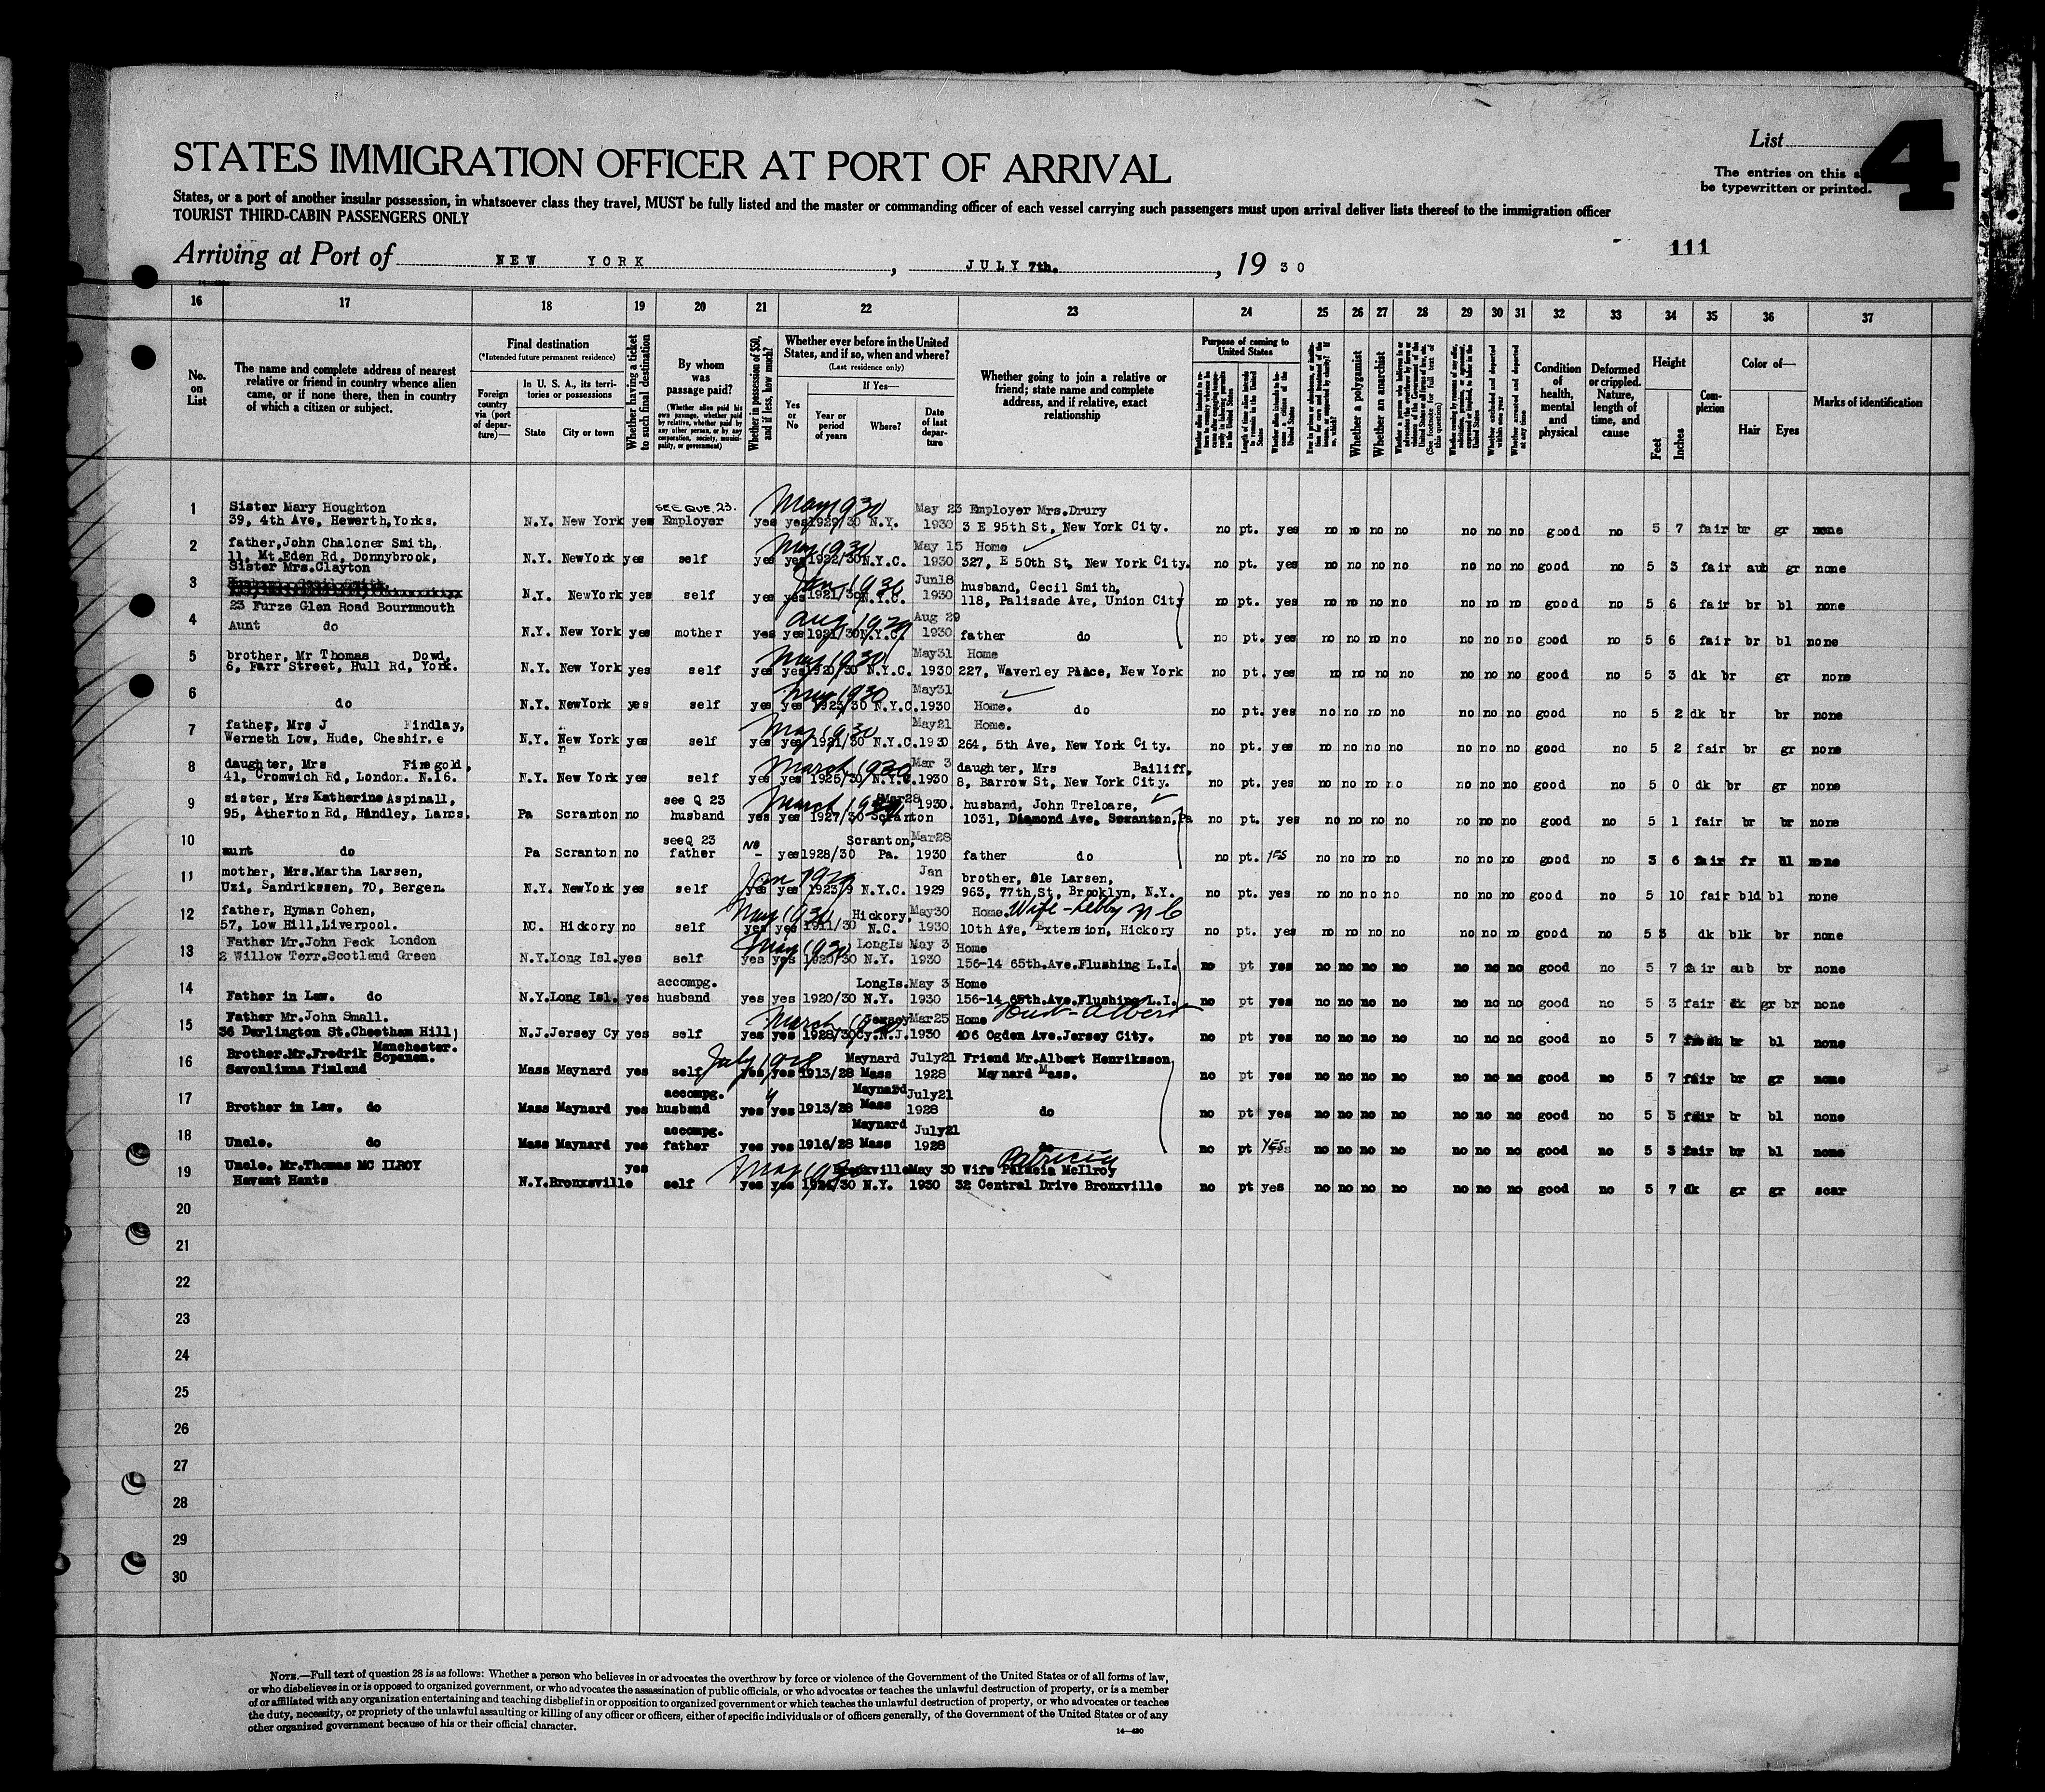 STATES IMMIGRATION OFFICER AT PORT OF ARRIVAL
States, or a port of another insular possession, in whatsoever class they travel, MUST be fully listed and the master or commanding officer of each vessel carrying such passengers must upon arrival deliver lists thereof to the immigration officer
TOURIST THIRD-CABIN PASSENGERS ONLY
List
4
The entries on this
be typewritten or printed.
Arriving at Port of NEW YORK, JULY 7th., 1930
111
16 17 18 19 20 21 22 23 24 25 26 27 28 29 30 31 32 33 34 35 36 37
No. on List
The name and complete address of nearest relative or friend in country whence alien came, or if none there, then in country of which a citizen or subject.
Final destination
(*Intended future permanent residence)
Foreign country via (port of departure)—
In U. S. A., its territories or possessions
State
City or town
Whether having a ticket to such final destination
By whom was passage paid?
(Whether alien paid his own passage, whether paid by relative, whether paid by any other person, or by any corporation, society, municipality, or government)
Whether in possession of $50, and if less, how much?
Whether ever before in the United States, and if so, when and where?
(Last residence only)
Yes or No
If Yes—
Year or period of years
Where?
Date of last departure
Whether going to join a relative or friend; state name and complete address, and if relative, exact relationship
Purpose of coming to United States
Length of time alien intends to remain in the United States
Whether alien intends to become a citizen of the United States
Whether a polygamist
Whether an anarchist
(See footnote for full text of this question)
Whether excluded and deported within one year
Whether arrested and deported at any time
Condition of health, mental and physical
Deformed or crippled. Nature, length of time, and cause
Height
Feet
Inches
Complexion
Color of—
Hair
Eyes
Marks of identification
SEE QUE. 23. May 1930
1 Sister Mary Houghton May 23 Employer Mrs.Drury
39, 4th Ave, Hewerth,Yorks. N.Y. New York yes Employer yes yes 1929/30 N.Y. 1930 3 E 95th St, New York City. no pt. yes no no no no no no no good no 5 7 fair br gr none
2 father,John Chaloner Smith, May 1930 May 15 Home
11, Mt.Eden Rd, Donnybrook, N.Y. NewYork yes self yes yes 1922/30 N.Y.C. 1930 327, E 50th St, New York City. no pt. yes no no no no no no no good no 5 3 fair aub gr none
Sister Mrs.Clayton
3 Jan 1930 Jun18 husband, Cecil Smith,
N.Y. NewYork yes self yes yes 1921/30 N.Y.C. 1930 118, Palisade Ave, Union City no pt. yes no no no no no no no good no 5 6 fair br bl none
23 Furze Glen Road Bournmouth
4 Aunt do Aug 1929 Aug 29
N.Y. New York yes mother yes yes 1921/30 N.Y.C. 1930 father do no pt. yes no no no no no no no good no 5 6 fair br bl none
5 brother, Mr Thomas Dowd, May 1930 May31 Home
6, Farr Street, Hull Rd, York. N.Y. New York yes self yes yes 1920/30 N.Y.C. 1930 227, Waverley Place, New York no pt. yes no no no no no no no good no 5 3 dk br gr none
6 May 1930 May31
do N.Y. NewYork yes self yes yes 1923/30 N.Y.C. 1930 Home. do no pt. yes no no no no no no no good no 5 2 dk br br none
7 father, Mrs J Findlay, May 1930 May21 Home.
Werneth Low, Hude, Cheshir.e N.Y. New York yes self yes yes 1921/30 N.Y.C. 1930 264, 5th Ave, New York City. no pt. yes no no no no no no no good no 5 2 fair br gr none
8 daughter, Mrs Finegold, March 1930 Mar 3 daughter, Mrs Bailiff,
41, Cromwich Rd, London. N.16. N.Y. New York yes self yes yes 1925/30 N.Y.C. 1930 8, Barrow St, New York City. no pt. yes no no no no no no no good no 5 0 dk br gr none
9 sister, Mrs Katherine Aspinall, see Q 23 March Mar28 1930. husband, John Treloare,
95, Atherton Rd, Hindley, Lancs. Pa Scranton no husband yes yes 1927/30 Scranton 1031, Diamond Ave, Scranton, Pa no pt. yes no no no no no no no good no 5 1 fair br br none
10 seeQ 23 No Scranton, Mar28
aunt do Pa Scranton no father - yes 1928/30 Pa. 1930 father do no pt. YES no no no no no no no good no 3 6 fair fr bl none
11 mother, Mrs.Martha Larsen, Jan 1929 Jan brother, Ole Larsen,
Uzi, Sandrikssen, 70, Bergen. N.Y. NewYork yes self yes yes 1923/9 N.Y.C. 1929 963, 77th St, Brooklyn, N.Y. no pt. yes no no no no no no no good no 5 10 fair bld bl none
12 father, Hyman Cohen, May 1930 Hickory, May30 Home. Wife - Libby N C
57, Low Hill,Liverpool. NC. Hickory no self yes yes 1911/30 N.C. 1930 10th Ave, Extension, Hickory no pt. yes no no no no no no no good no 5 3 dk blk br none
13 Father Mr.John Peck London May 1930 LongIs May 3 Home
2 Willow Terr.Scotland Green N.Y. Long Isl. yes self yes yes 1920/30 N.Y. 1930 156-14 65th.Ave.Flushing L.I. no pt yes no no no no no no no good no 5 7 fair aub br none
14 accompg. LongIs. May 3 Home
Father in Law. do N.Y. Long Isl. yes husband yes yes 1920/30 N.Y. 1930 156-14 65th.Ave.Flushing L.I. no pt yes no no no no no no no good no 5 3 fair dk gr br none
15 Father Mr.John Small. March 1930 Jersey Mar25 Home Husb - Albert
36 Derlington St.Cheetham Hill) N.J. Jersey Cy yes self yes yes 1928/30 Cy.N.J. 1930 406 Ogden Ave.Jersey City. no pt yes no no no no no no no good no 5 7 fresh br bl none
Manchester.
16 Brother.Mr.Fredrik Sopanen. July 1928 Maynard July21 Friend Mr.Albert Henriksson
Savonlinna Finland Mass Maynard yes self yes yes 1913/28 Mass 1928 Maynard Mass. no pt yes no no no no no no no good no 5 7 fair br gr none
17 accompg. " Maynard July21
Brother in Law. do Mass Maynard yes husband yes yes 1913/28 Mass 1928 do no pt yes no no no no no no no good no 5 5 fair br bl none
18 accompg. Maynard July21
Uncle. do Mass Maynard yes father yes yes 1916/28 Mass 1928 do no pt YES no no no no no no no good no 5 3 fair br bl none
Patricia
19 Uncle. Mr.Thomas MC ILROY yes May Bronxville May 30 Wife Patacia McIlroy
Havant Hants N.Y. Bronxville self yes yes 1930 32 Central Drive Bronxville no pt yes no no no no no no no good no 5 7 dk gr gr scar
20
21
22
23
24
25
26
27
28
29
30
NOTE.—Full text of question 28 is as follows: Whether a person who believes in or advocates the overthrow by force or violence of the Government of the United States or of all forms of law,
or who disbelieves in or is opposed to organized government, or who advocates the assassination of public officials, or who advocates or teaches the unlawful destruction of property, or is a member
of or affiliated with any organization entertaining and teaching disbelief in or opposition to organized government or which teaches the unlawful destruction of property, or who advocates or teaches
the duty, necessity, or propriety of the unlawful assaulting or killing of any officer or officers, either of specific individuals or of officers generally, of the Government of the United States or of any
other organized government because of his or their official character.
14—420